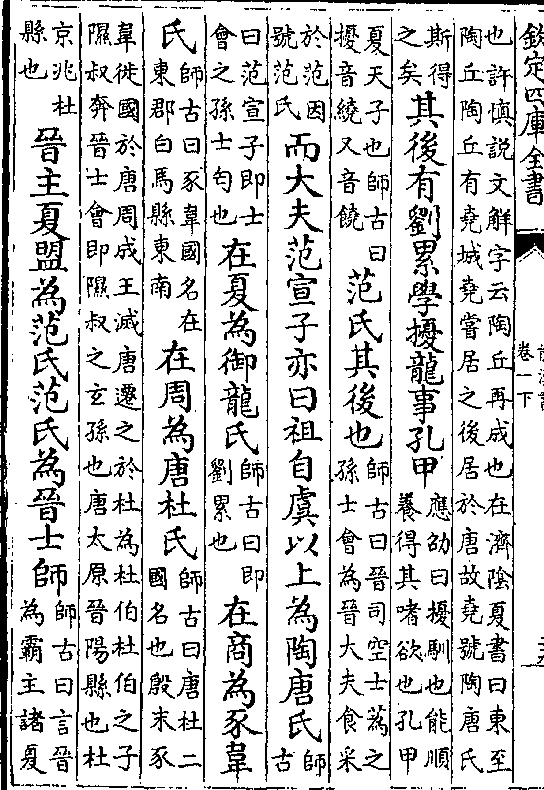 欽定四庫全書
卷一下
也許慎說文解字云陶丘再成也在濟陰夏書曰東至
陶丘陶丘有堯城堯嘗居之後居於唐故堯號陶唐氏
斯得
之矣
其後有劉累學擾龍事孔甲
應劭曰擾馴也能順
養得其嗜欲也孔甲
夏天子也師古曰
擾音繞又音饒
范氏其後也
師古曰晉司空士蒍之
孫士會為晉大夫食采
於范因
號范氏
而大夫范宣子亦曰祖自虞以上為陶唐氏
師
古
曰范宣子即士
會之孫士匄也
在夏為御龍氏
師古曰即
劉累也
在商為豕韋
氏
師古曰豕韋國名在
東郡白馬縣東南
在周為唐杜氏
師古曰唐杜二
國名也殷末豕
韋徙國於唐周成王滅唐遷之於杜為杜伯杜伯之子
隰叔奔晉士會即隰叔之玄孫也唐太原晉陽縣也杜
京兆杜
縣也
晉主夏盟為范氏范氏為晉士師
師古曰言晉
為霸主諸夏